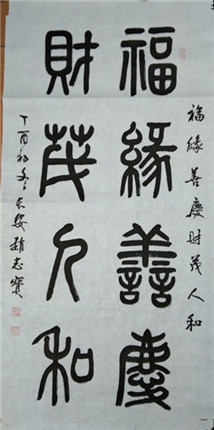 福緣善慶
財茂人和
福緣善慶財茂人和
丁酉初冬東安趙志寶